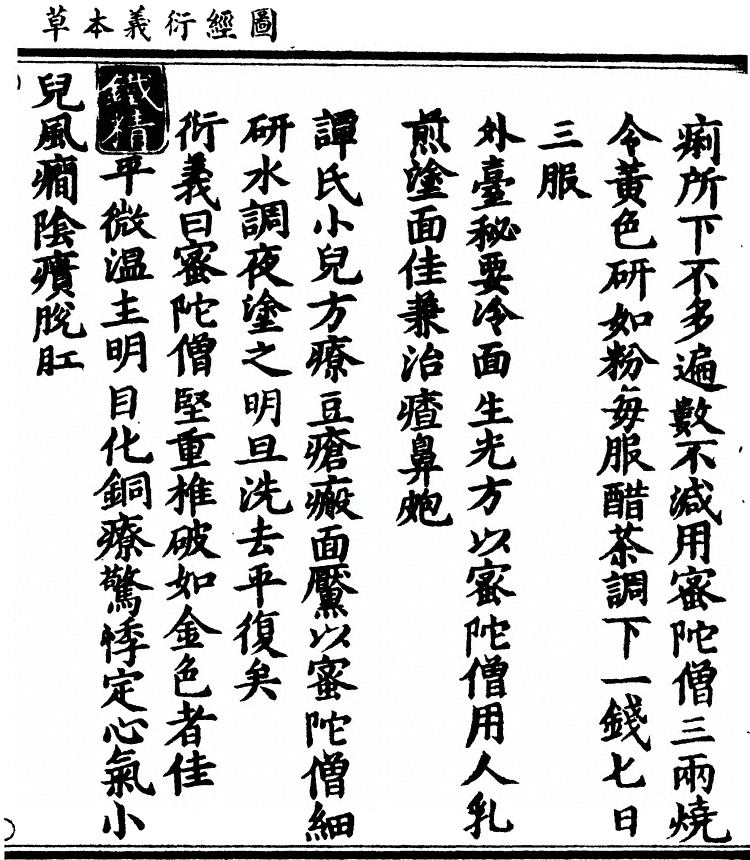 圖經衍義本草
痢所下不多遍數不減用蜜陀僧三兩燒
令黃色研如粉每服醋茶調下一錢七日
三服
外臺秘要冷面生光方以蜜陀僧用人乳
煎塗面佳兼治㾴鼻皰
譚氏小兒方療豆瘡瘢面黶以蜜陀僧細
研水調夜塗之明旦洗去平復矣
衍義曰蜜陀僧堅重椎破如金色者佳
鐵精平微溫主明目化銅療驚悸定心氣小
兒風癎陰㿉脫肛